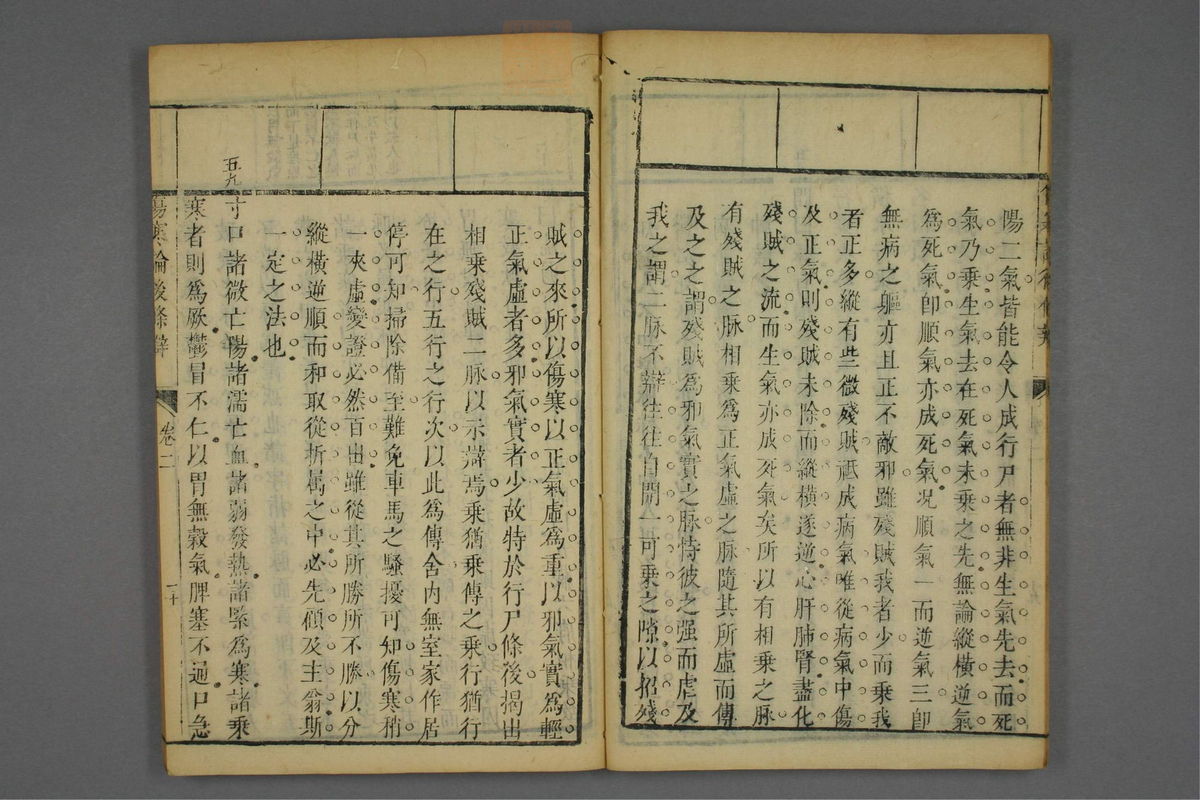 陽二氣皆能令人成行尸者無非生氣先去而死
氣乃乗生氣去在死氣未乗之先無論縱橫逆氣
爲死氣卽順氣亦成死氣况順氣一而逆氣三卽
無病之軀亦且正不敵邪雖殘賊我者少而乗我
者正多縱有些微殘賊祗成病氣唯從病氣中傷
及正氣則殘賊未除而縱橫遂逆心肝肺腎盡化
殘賊之流而生氣亦成死氣矣所以有相乗之脉
有殘賊之脉相乗爲正氣虛之脉隨其所虛而傳
及之之謂殘賊爲邪氣實之脉恃彼之强而虐及
我之謂二脉不辯往往自開一可乗之隙以招殘
賊之來所以傷寒以正氣虛爲重以邪氣實爲輕
正氣虛者多邪氣實者少故特於行尸條後揭出
相乗殘賊二脉以示辯焉乗猶乗傳之乗行猶行
在之行五行之行次以此爲傳舍内無室家作居
停可知掃除備至難免車馬之騷擾可知傷寒稍
一夾虛變證必然百出雖從其所勝所不勝以分
縱橫逆順而和取從折屬之中必先顧及主翁斯
一定之法也
五九
寸口諸微亡陽諸濡亡血諸弱發熱諸緊爲寒諸乗
寒者則爲厥鬱冒不仁以胃無穀氣脾塞不通口急
傷寒論後條辨
卷二
二十